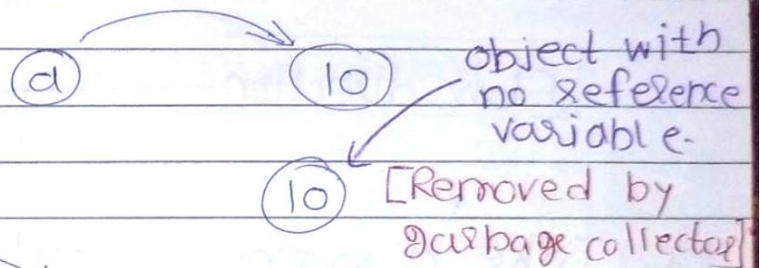 a
10
object with
no reference
variable.
10
[Removed by
garbage collector]